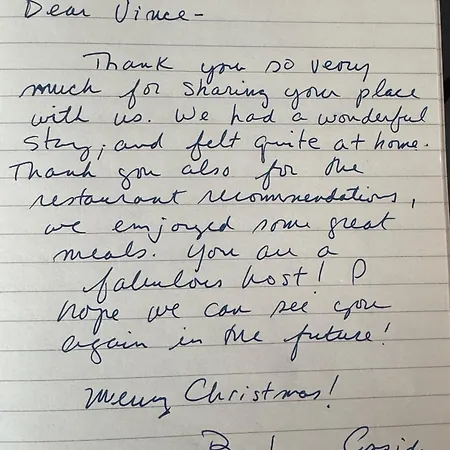 Dear Vince-
Thank you so very
much for sharing your place
with us. We had a wonderful
stay, and felt quite at home.
Thank you also for the
restaurant recommendations,
we enjoyed some great
meals. You are a
fabulous host! I
hope we can see you
again in the future!
Merry Christmas!